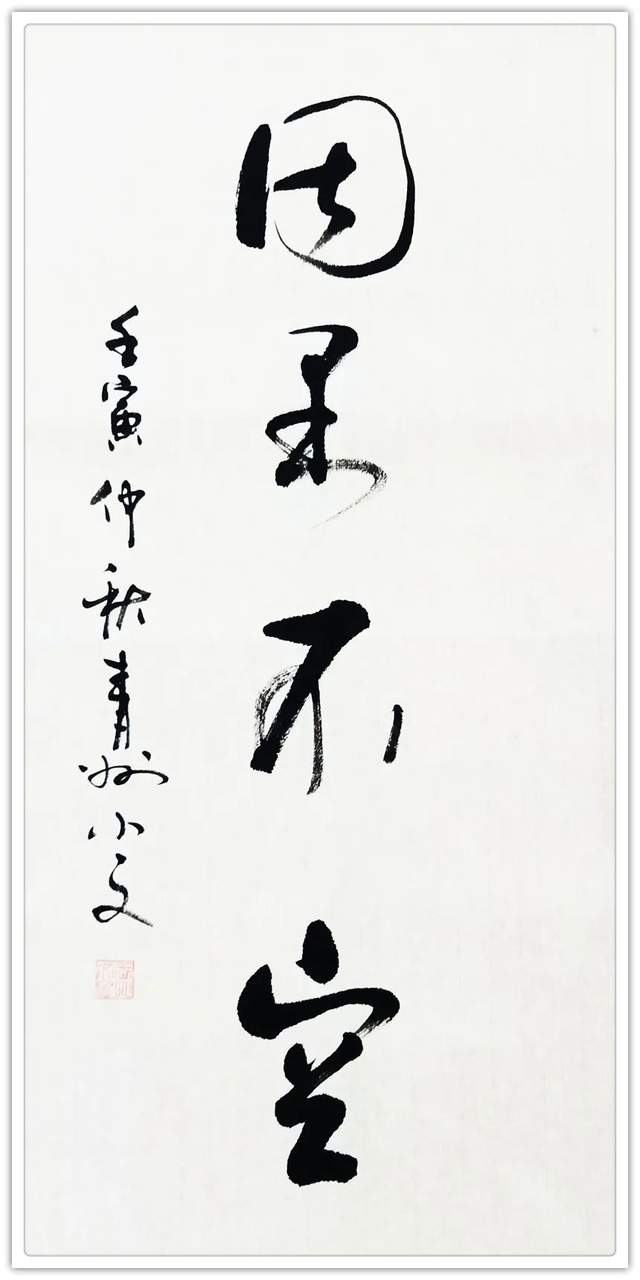 因果不空
壬寅仲秋青州小文